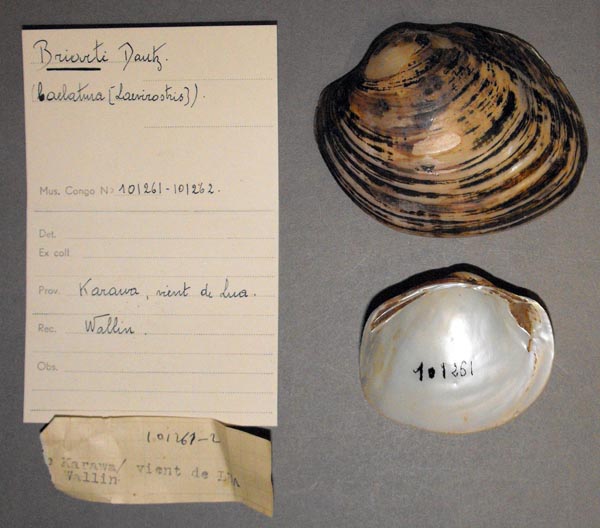 Briarti Dautz.
(Caelatura [Laevirostris]).
Mus. Congo No 101261-101262.
Det.
Ex coll
Prov. Karawa, vient de Lua.
Rec. Wallin.
Obs.
101261-2
Karawa/ vient de Lua
Wallin
101261